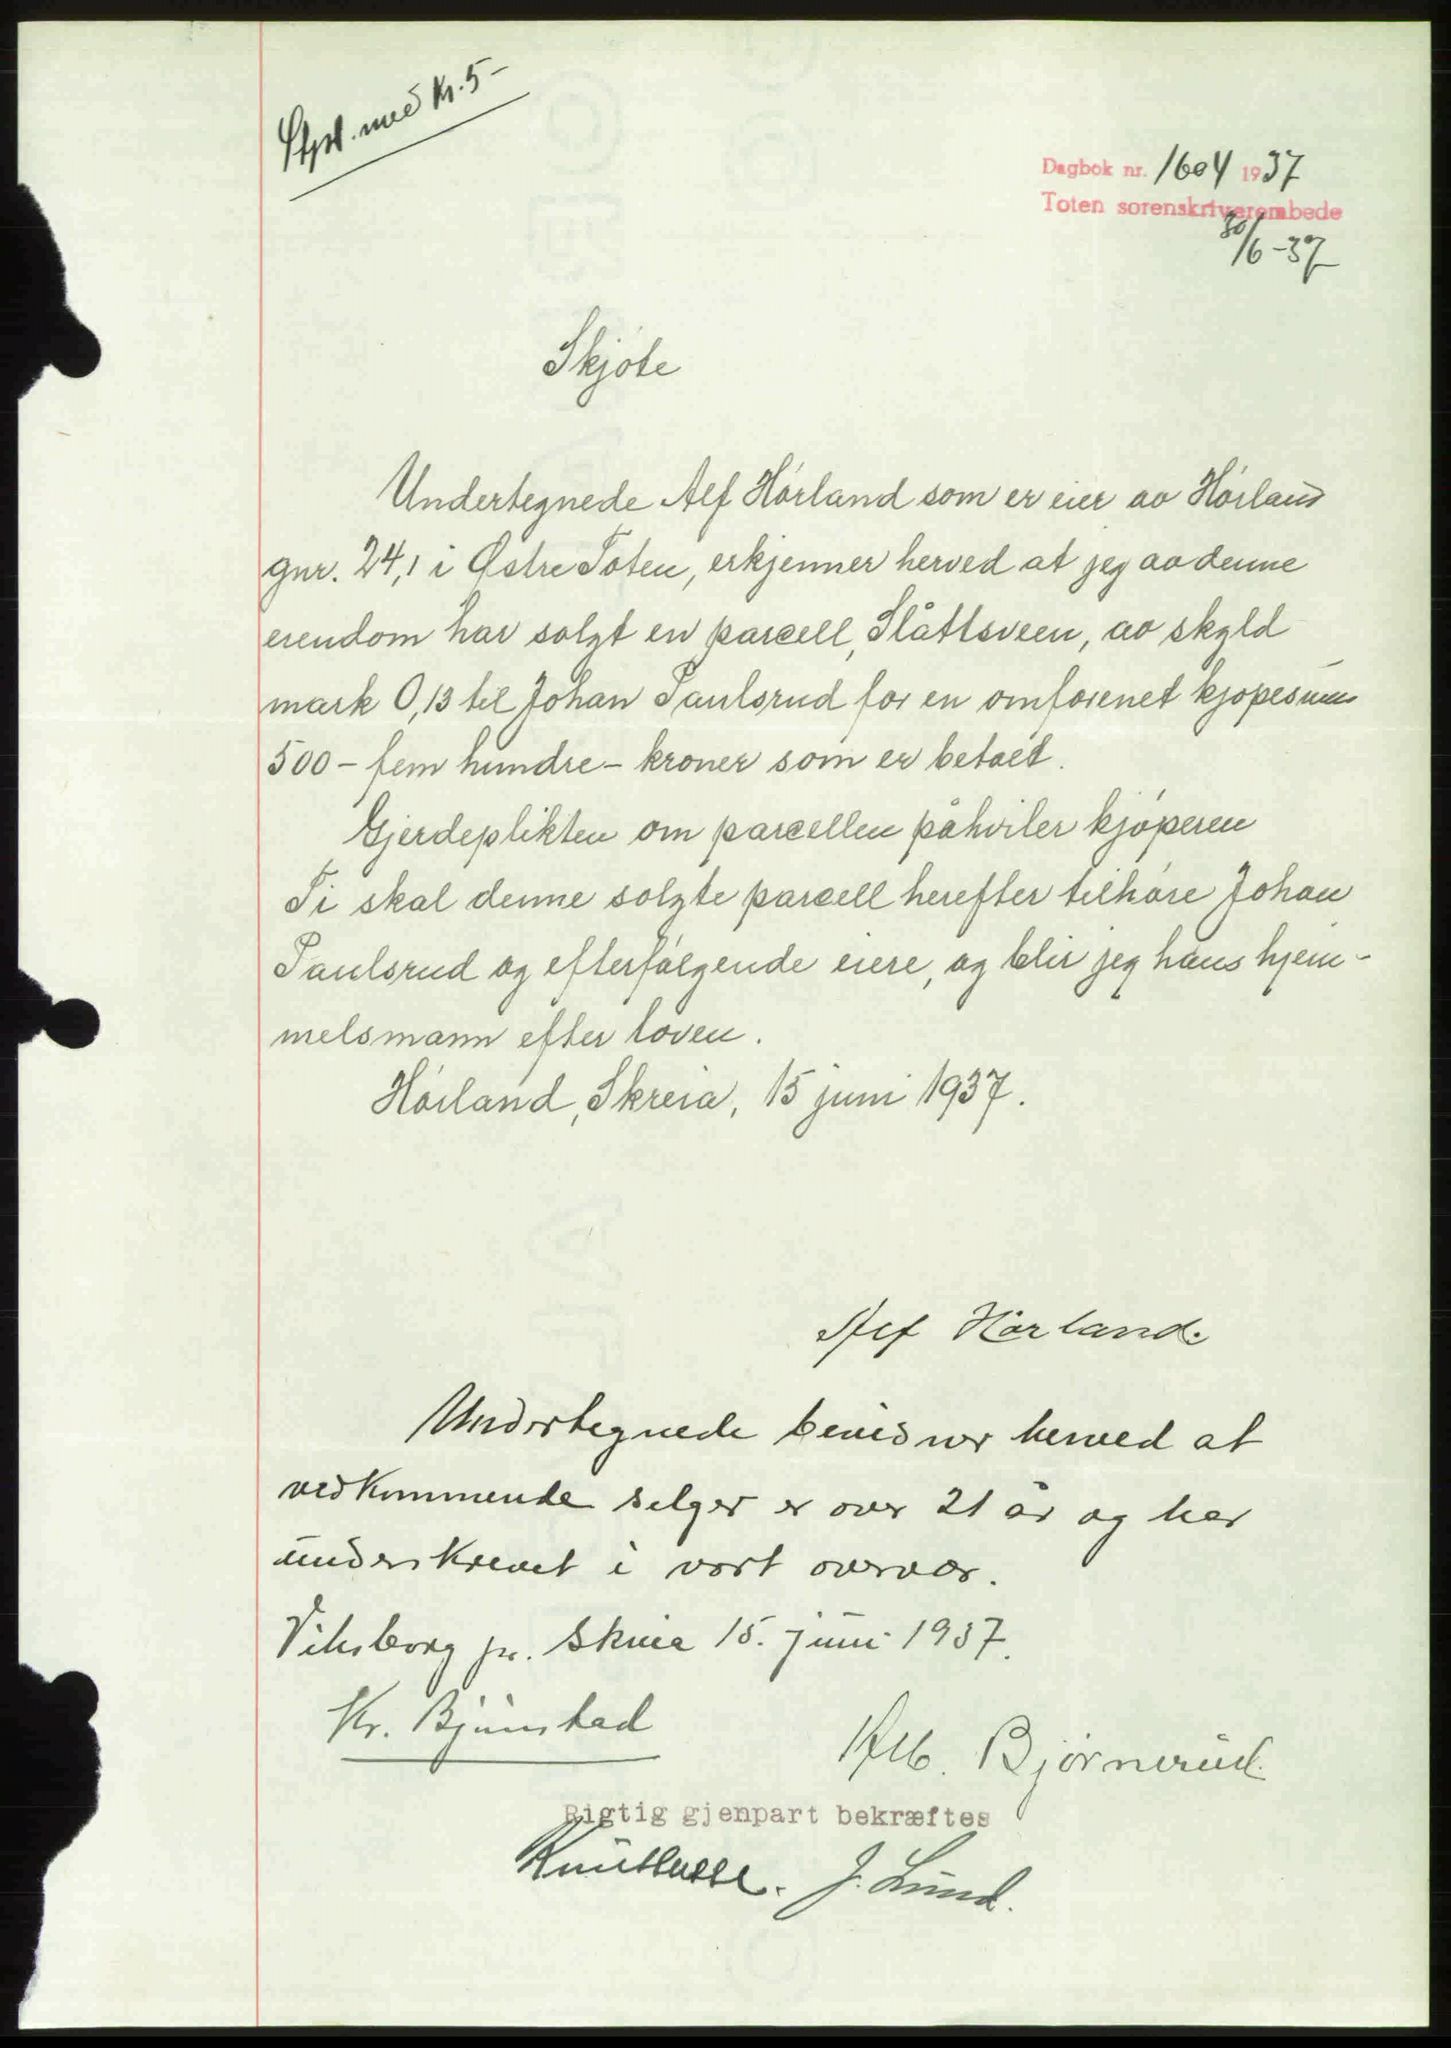 Stpl. med Kr. 5-
Dagbok nr. 1604 1937
Toten sorenskriverembede
30/6-37
Skjøte
Undertegnede Alf Hørland som er eier av Hørland
gnr. 24,1 i Østre Toten, erkjenner herved at jeg av denne
eiendom har solgt en parcell, Slåttsveen, av skyld
mark 0,13 til Johan Paulsrud for en omforenet kjøpesum
500 - fem hundre - kroner som er betalt.
Gjerdeplikten om parcellen påhviler kjøperen
Ti skal denne solgte parcell herefter tilhøre Johan
Paulsrud og efterfølgende eiere, og blir jeg hans hjem-
melsmann efter loven.
Hørland, Skreia, 15 juni 1937.
Alf Hørland.
Undertegnede bevidner herved at
vedkommende selger er over 21 år og har
underskrevet i vort overvær.
pr. Skreia 15. juni 1937.
Kr. Bjørnstad
Bjørnerud.
Rigtig gjenpart bekræftes
J. Lund.